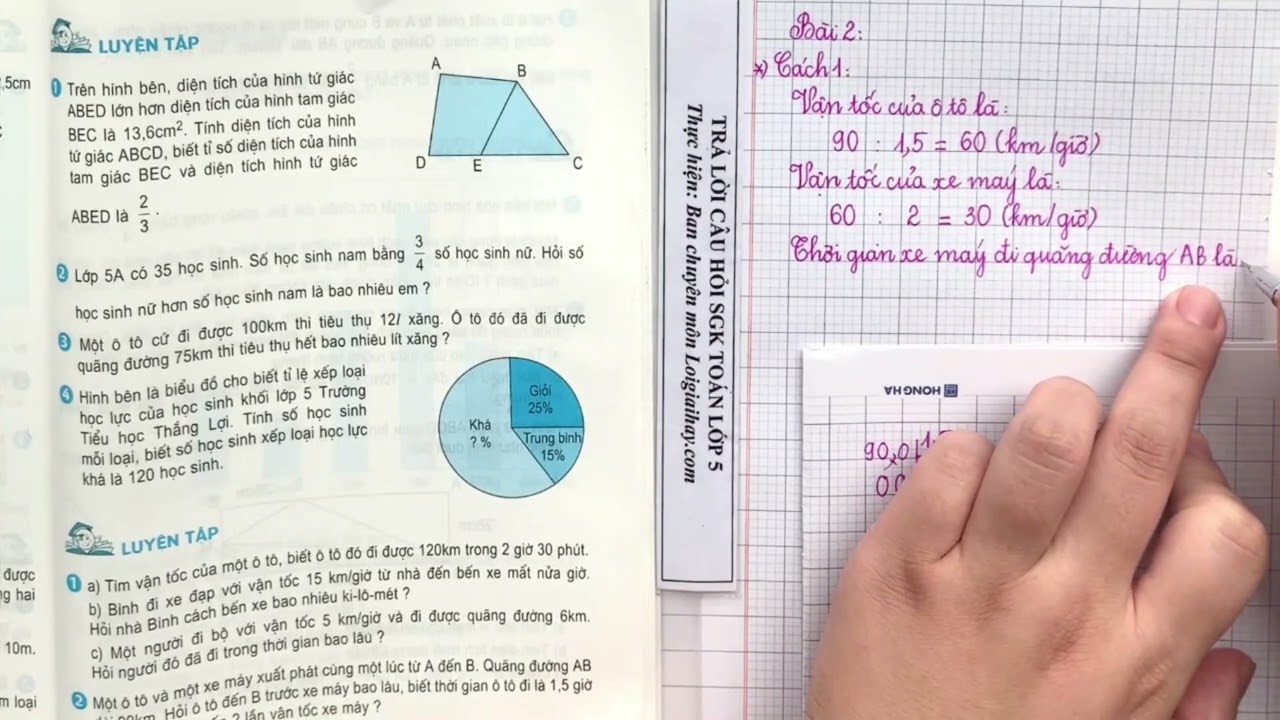 LUYỆN TẬP
1 Trên hình bên, diện tích của hình tứ giác
ABED lớn hơn diện tích của hình tam giác
BEC là 13,6cm². Tính diện tích của hình
tứ giác ABCD, biết tỉ số diện tích của hình
tam giác BEC và diện tích hình tứ giác
ABED là 2/3 .
A
B
D
E
C
2 Lớp 5A có 35 học sinh. Số học sinh nam bằng 3/4 số học sinh nữ. Hỏi số
học sinh nữ hơn số học sinh nam là bao nhiêu em ?
3 Một ô tô cứ đi được 100km thì tiêu thụ 12l xăng. Ô tô đó đã đi được
quãng đường 75km thì tiêu thụ hết bao nhiêu lít xăng ?
4 Hình bên là biểu đồ cho biết tỉ lệ xếp loại
học lực của học sinh khối lớp 5 Trường
Tiểu học Thắng Lợi. Tính số học sinh
mỗi loại, biết số học sinh xếp loại học lực
khá là 120 học sinh.
Giỏi
25%
Khá
? %
Trung bình
15%
LUYỆN TẬP
1 a) Tìm vận tốc của một ô tô, biết ô tô đó đi được 120km trong 2 giờ 30 phút.
b) Bình đi xe đạp với vận tốc 15 km/giờ từ nhà đến bến xe mất nửa giờ.
Hỏi nhà Bình cách bến xe bao nhiêu ki-lô-mét ?
c) Một người đi bộ với vận tốc 5 km/giờ và đi được quãng đường 6km.
Hỏi người đó đã đi trong thời gian bao lâu ?
2 Một ô tô và một xe máy xuất phát cùng một lúc từ A đến B. Quãng đường AB
90km. Hỏi ô tô đến B trước xe máy bao lâu, biết thời gian ô tô đi là 1,5 giờ
2 lần vận tốc xe máy ?
,5cm
được
ng hai
10m.
loại
TRẢ LỜI CÂU HỎI SGK TOÁN LỚP 5
Thực hiện: Ban chuyên môn Loigiaihay.com
Bài 2:
*) Cách 1:
Vận tốc của ô tô là:
90 : 1,5 = 60 (km/giờ)
Vận tốc của xe máy là:
60 : 2 = 30 (km/giờ)
Thời gian xe máy đi quãng đường AB là
HONG HA
90,0